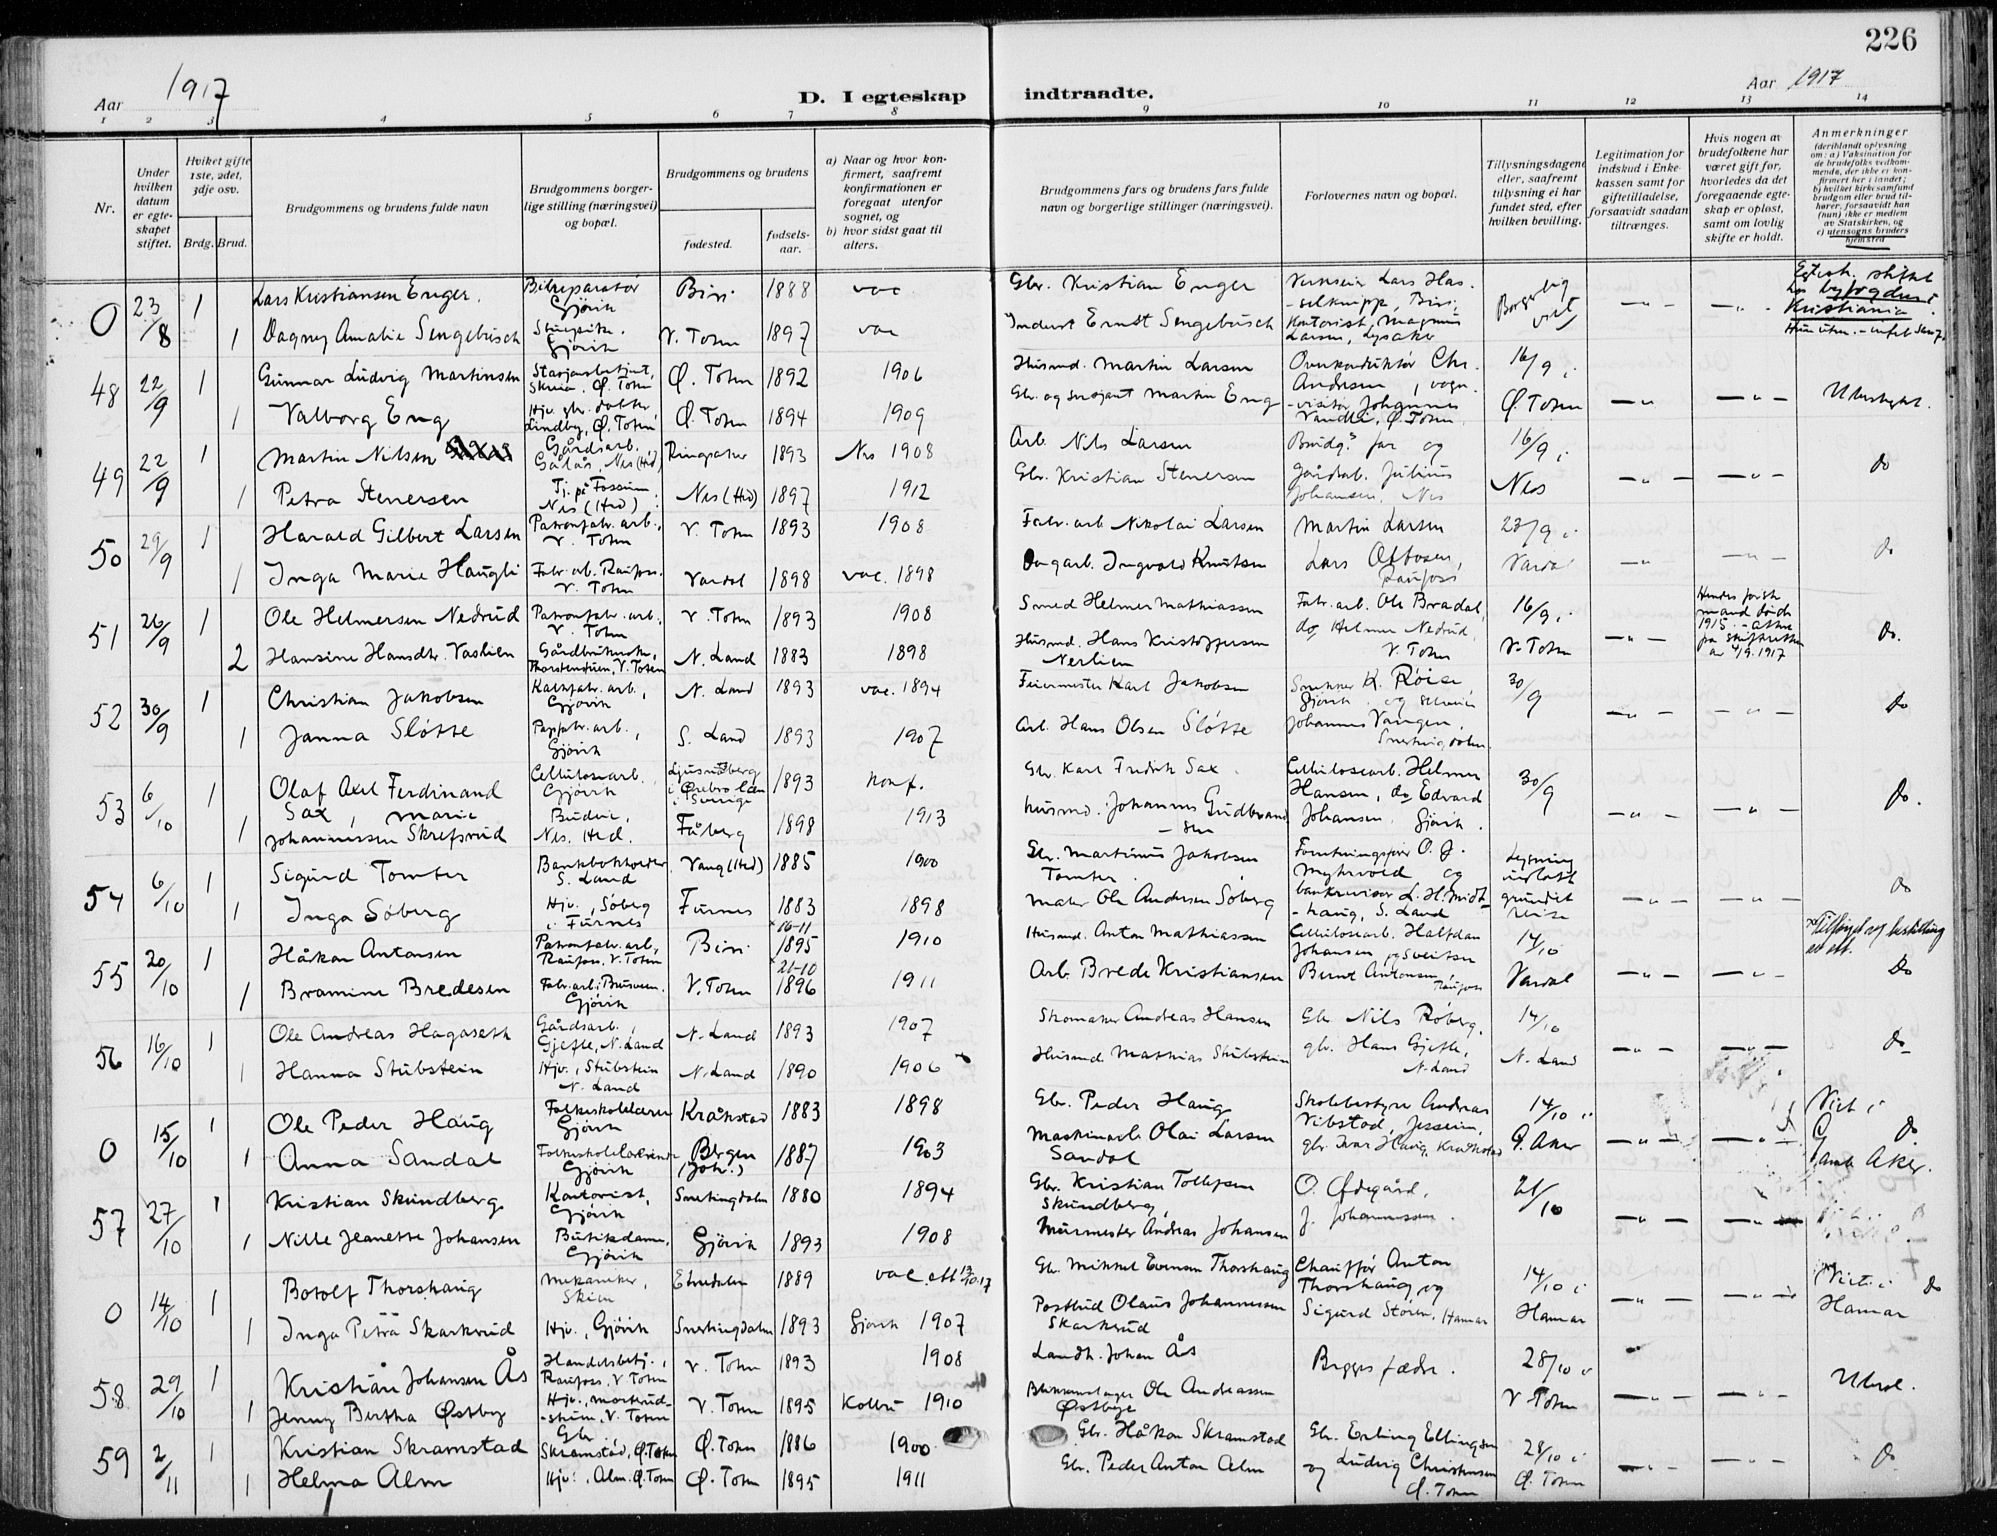 226
Aar 1917
D. I egteskap indtraadte.
Aar 1917
1 2 3 4 5 6 7 8 9 10 11 12 13 14
Nr.
Under hvilken datum er egteskapet stiftet.
Hvilket gifte 1ste, 2det, 3dje osv.
Brdg. Brud.
Brudgommens og brudens fulde navn
Brudgommens borgerlige stilling (næringsvei) og bopæl.
Brudgommens og brudens
fødested.
fødselsaar.
a) Naar og hvor konfirmert, saafremt konfirmationen er foregaat utenfor sognet, og
b) hvor sidst gaat til alters.
Brudgommens fars og brudens fars fulde navn og borgerlige stillinger (næringsvei).
Forlovernes navn og bopæl.
Tillysningsdagene eller, saafremt tillysning ei har fundet sted, efter hvilken bevilling.
Legitimation for indskud i Enkekassen samt for giftetilladelse, forsaavidt saadan tiltrænges.
Hvis nogen av brudefolkene har været gift før, hvorledes da det foregaaende egteskap er opløst, samt om lovlig skifte er holdt.
Anmerkninger
(deriblandt oplysning om: a) Vaksination for de brudefolks vedkommende, der ikke er konfirmert her i landet; b) hvilket kirkesamfund brudgom eller brud tilhører, forsaavidt han (hun) ikke er medlem av Statskirken, og c) utensogns bruders hjemsted
0 23/8 1 Lars Kristiansen Enger. Bilreparatør Gjøvik Biri 1888 vac Gbr. Kristian Enger Borgerlig viet Kristiania
1 Dagny Amalie Sengebusch Gjøvik V. Toten 1897 vac Ernst Sengebusch Kontorist, Magnus Larsen, Lysaker
48 22/9 1 Gunnar Ludvig Martinsen Skreia, Ø. Toten Ø. Toten 1892 1906 Husmd. Martin Larsen 16/9 i
1 Valborg Eng Lindby, Ø. Toten Ø. Toten 1894 1909 Gbr. og sersjant Martin Eng Johannes Ø. Toten Ø. Toten
49 22/9 1 Martin Nilsen Gårdsarb. Nes (Hed) Ringsaker 1893 Nes 1908 Arb. Nils Larsen Brudg.s far og 16/9 i do
1 Petra Stenersen Tj. på Fossum Nes (Hed) Nes (Hed) 1897 1912 Gbr. Kristian Stenersen Gårdarb. Julius Johansen, Nes Nes
50 29/9 1 Harald Gilbert Larsen Patronfabr. arb., V. Toten V. Toten 1893 1908 Fabr. arb. Nikolai Larsen Martin Larsen 23/9 i do
1 Inga Marie Haugli Fabr. arb. Raufoss. V. Toten Vardal 1898 vac. 1898 Dagarb. Ingvald Knutsen Lars Ottosen, Raufoss Vardal
51 26/9 1 Ole Helmersen Nedrud Patronfabr. arb., V. Toten V. Toten 1893 1908 Smed Helmer Mathiassen Fabr. arb. Ole Bradal, 16/9 i 1915
2 Hansine Hansdtr. Vaslien V. Toten N. Land 1883 1898 Husmd. Hans Kristoffersen Nerlien do Helmer Nedrud, V. Toten V. Toten 4/9.1917 do.
52 30/9 1 Christian Jakobsen Kalkfabr. arb., Gjøvik N. Land 1893 vac. 1894 Feiermester Karl Jakobsen Snekker K. Røise Gjøvik og 30/9 do
1 Janna Sløtte Papfabr. arb., Gjøvik S. Land 1893 1907 Arb. Hans Olsen Sløtte Johannes Vangen, Snertingdalen
53 6/10 1 Olaf Axel Ferdinand Sax, Cellulosearb. Gjøvik Ljusnarsberg i Ørebro län i Sverige 1893 Konf. Gbr. Karl Fredrik Sax. Cellulosearb. Helmer Hansen, do Edvard 30/9 do.
1 Marie Johannessen Skrefsrud Budeie, Nes. Hed. Fåberg 1898 1913 Husmd. Johannes Gudbrandsen Johansen. Gjøvik.
54 6/10 1 Sigurd Tomter Bankbokholder S. Land Vang (Hed) 1885 1900 Gbr. Martinus Jakobsen Tomter Forretningsfører O. J. Myhrvold og Lysning undlatt do
1 Inga Søberg Hjv., Søberg i Furnes Furnes 1883 1898 Maler Ole Andersen Søberg bankrevisor L. H. Midthaug, S. Land grundet reise
55 20/10 1 Håkon Antonsen Patronfabr. arb, Raufoss, V. Toten Biri 16-11 1895 1910 Husmd. Anton Mathiassen Cellulosearb. Halfdan Johansen og 14/10
1 Bramine Bredesen Fabr. arb. Gjøvik V. Toten 21-10 1896 1911 Arb. Brede Kristiansen Bernt Antonsen, Raufoss Vardal do
56 16/10 1 Ole Andreas Hagaseth Gårdsarb., Gjefle, N. Land N. Land 1893 1907 Skomaker Andreas Hansen Gbr. Nils Røberg, 14/10 do
1 Hanna Stubstein Hjv., Stubstein N. Land N. Land 1890 1906 Husmd Mathias Stubstein gbr. Hans Gjefle, N. Land N. Land
0 15/10 1 Ole Peder Haug Folkeskolelærer Gjøvik Kråkstad 1883 1898 Gbr. Peder Haug Skolebestyrer Andreas Vibstad, Jessheim, 14/10 i Viet i
1 Anna Sandal Folkeskolelærerinde Gjøvik Bergen (Joh.) 1887 1903 Maskinarb. Olai Larsen Sandal gbr. Ivar Haug, Kråkstad Ø. Aker do Aker.
57 27/10 1 Kristian Skundberg Kontorist, Gjøvik Snertingdalen 1880 1894 Gbr. Kristian Tollefsen Skundberg, O. Ødegård, 21/10
1 Nille Jeanette Johansen Butikdame, Gjøvik Gjøvik 1893 1908 Murmester Andreas Johansen J. Johannessen.
0 14/10 1 Botolf Thorshaug Mekaniker, Skien Etnedalen 1889 vac. Gbr. Mikkel Evensen Thorshaug Chauffør Anton Thorshaug og 14/10 i Viet i do
1 Inga Petra Skarkrud Hjv., Gjøvik Snertingdalen 1893 Gjøvik 1907 Postbud Olaus Johannessen Skarkerud Sigurd Støren, Hamar Hamar Hamar
58 29/10 1 Kristian Johansen Ås Handelsbetj., Raufoss, V. Toten V. Toten 1893 1908 Landh. Johan Ås Begges fædre. 28/10 i
1 Jenny Bertha Østby V. Toten V. Toten 1895 Kolbu 1910 Blikkenslager Ole Andreassen Østbye V. Toten
59 2/11 1 Kristian Skramstad Gbr. Skramstad, Ø. Toten Ø. Toten 1886 1900 Gbr. Håkon Skramstad Gbr. Erling Ellingsen 28/10 i do
1 Helma Alm Hjv., Alm. Ø. Toten Ø. Toten 1895 1911 Gbr. Peder Anton Alm og Ludvig Christensen Ø. Toten Ø. Toten